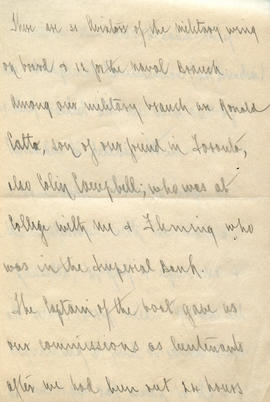 There are 31 Aviators of the military wing
on board & 12 for the naval branch
Among our military branch are Donald
Catto, son of our friend in Toronto,
also Colin Campbell; who was at
College with me & Fleming who
was in the Imperial Bank.
The Captain of the boat gave us
our commissions as lieutenants
after we had been out 24 hours